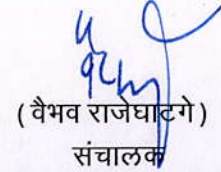 (वैभव राजेघाटगे)
संचालक